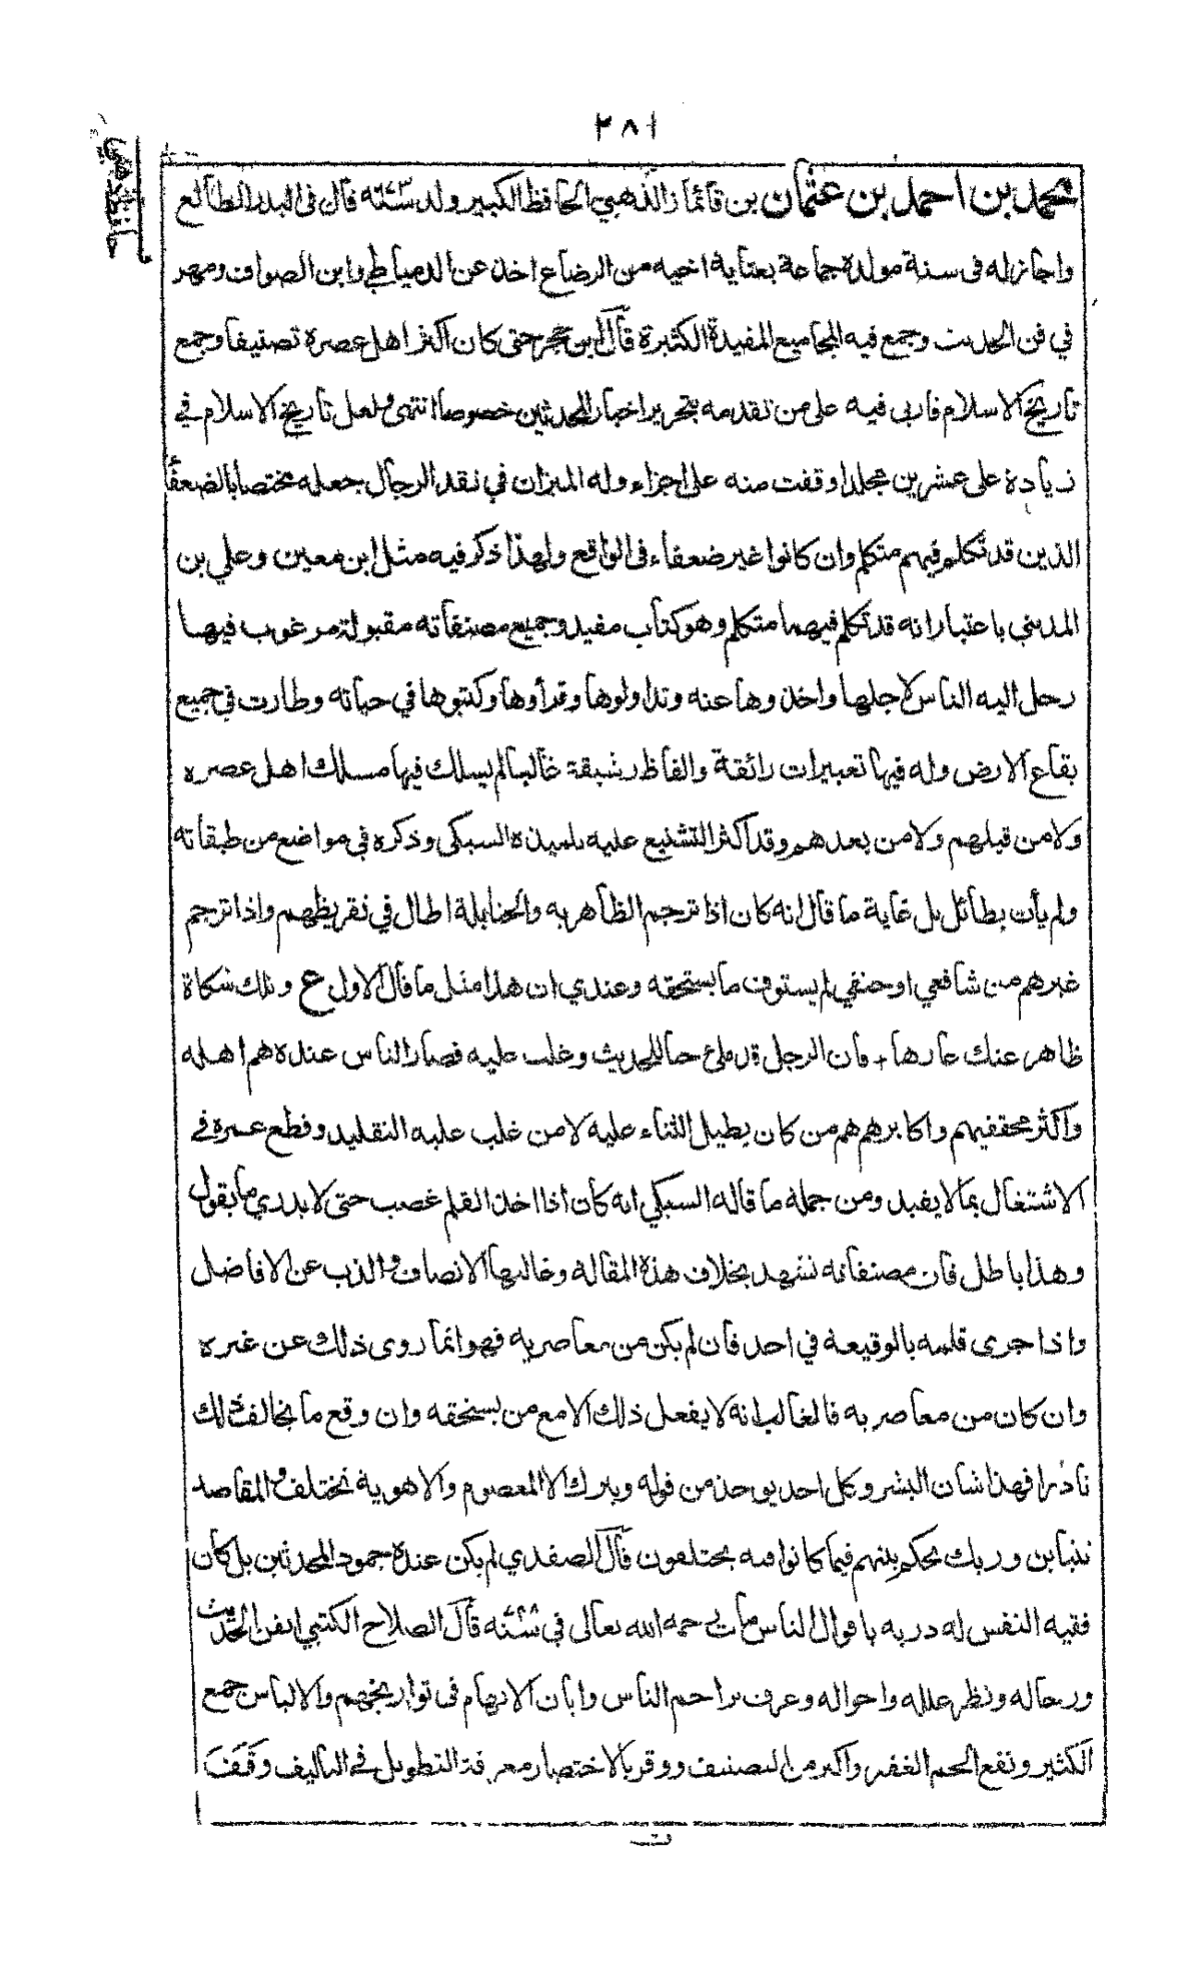 ٢٨١
حافظ ذهبي
محمد بن احمد بن عثمان بن قائماز الذهبي الحافظ الكبير ولد سنة ٦٧٣ قال في البدر الطالع
واجاز له في سنة مولده جماعة بعناية اخيه من الرضاع اخذ عن الدمياطي وابن الصواف ومهر
في فن الحديث وجمع فيه المجاميع المفيدة الكثيرة قال ابن حجر حتى كان اكثر اهل عصره تصنيفا وجمع
تاريخ الاسلام فاربى فيه على من تقدمه بتحرير اخبار المحدثين خصوصا انتهى ولعل تاريخ الاسلام في
زيادة على عشرين مجلدا وقفت منه على اجزاء وله الميزان في نقد الرجال جعله مختصا بالضعفاء
الذين قد تكلم فيهم متكلم وان كانوا غير ضعفاء في الواقع ولهذا ذكر فيه مثل ابن معين وعلي بن
المديني باعتبار انه قد تكلم فيهما متكلم وهو كتاب مفيد وجميع مصنفاته مقبولة مرغوب فيها
رحل اليه الناس لاجلها واخذوها عنه وتداولوها وقرأوها وكتبوها في حياته وطارت في جميع
بقاع الارض وله فيها تعبيرات رائقة والفاظ رشيقة غالبا لم يسلك فيها مسلك اهل عصره
ولا من قبلهم ولا من بعدهم وقد اكثر التشنيع عليه تلميذه السبكي وذكره في مواضع من طبقاته
ولم يأت بطائل بل غاية ما قال انه كان اذا ترجم الظاهريه والحنابلة اطال في تقريظهم واذا ترجم
غيرهم من شافعي او حنفي لم يستوف ما يستحقه وعندي ان هذا مثل ما قال الاول ع وتلك شكاة
ظاهر عنك عارها + فان الرجل قد ملئ حبا للحديث وغلب عليه فصار الناس عنده هم اهله
واكثر محققيهم واكابرهم هم من كان يطيل الثناء عليه لا من غلب عليه التقليد وقطع عمره في
الاشتغال بما لا يفيد ومن جملة ما قاله السبكي انه كان اذا اخذ القلم غضب حتى لا يدري ما يقول
وهذا باطل فان مصنفاته تشهد بخلاف هذه المقاله وغالبها الانصاف والذب عن الافاضل
واذا جرى قلمه بالوقيعه في احد فان لم يكن من معاصريه فهو انما روى ذلك عن غيره
وان كان من معاصريه فالغالب انه لا يفعل ذلك الا مع من يستحقه وان وقع ما يخالف ذلك
نادرا فهذا شان البشر وكل احد يوخذ من قوله ويترك الا المعصوم والاهوية تختلف والمقاصد
تتباين وربك يحكم بينهم فيما كانوا فيه يختلفون قال الصفدي لم يكن عنده جمود المحدثين بل كان
فقيه النفس له دربه باقوال الناس مات رحمه الله تعالى في سنة ٧٤٨ قال الصلاح الكتبي اتقن الحديث
ورجاله ونظر علله واحواله وعرف تراجم الناس وابان الابهام في تواريخهم والالباس جمع
الكثير ونفع الجم الغفير واكثر من التصنيف ووفر بالاختصار معرفة التطويل في التاليف وقف